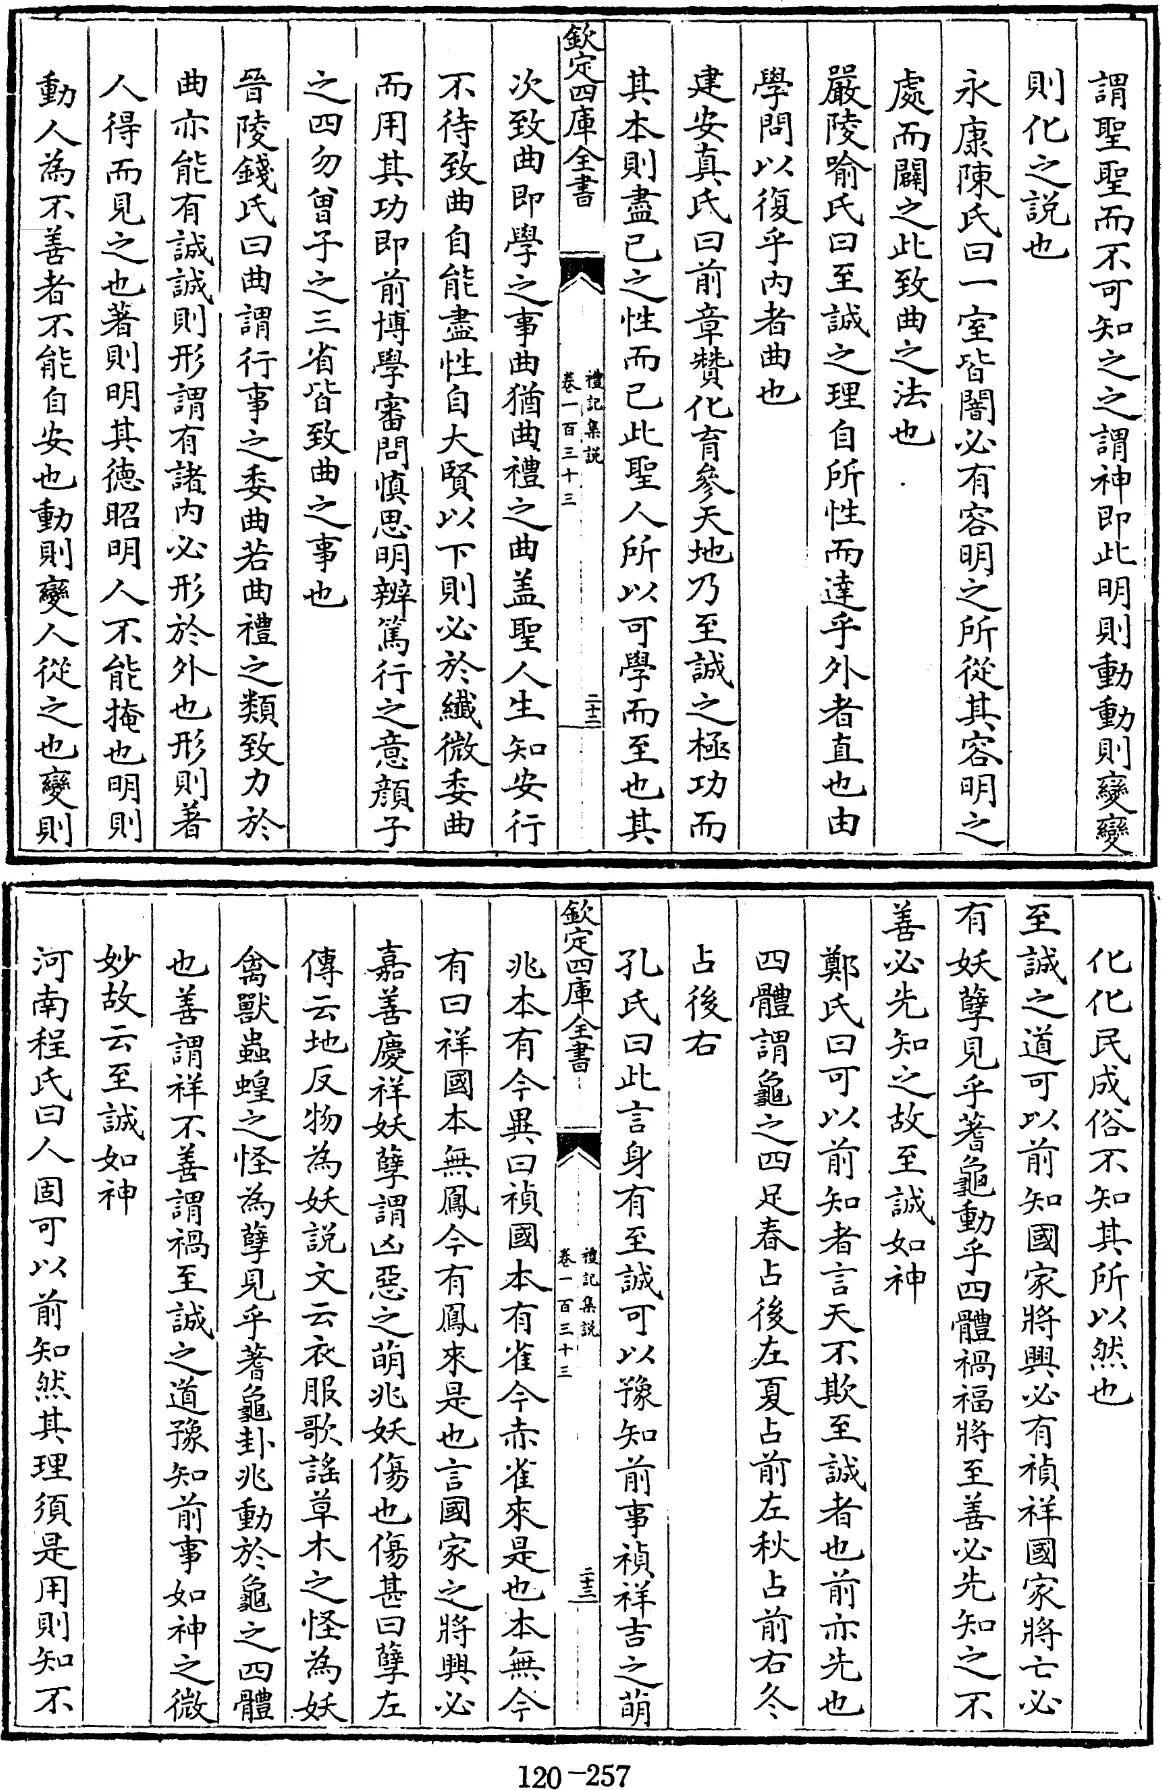 謂聖聖而不可知之之謂神即此明則動動則變變
則化之説也
永康陳氏曰一室皆闇必有容明之所從其容明之
處而闢之此致曲之法也
嚴陵喻氏曰至誠之理自所性而達乎外者直也由
學問以復乎内者曲也
建安真氏曰前章贊化育參天地乃至誠之極功而
其本則盡已之性而已此聖人所以可學而至也其
欽定四庫全書
禮記集説
卷一百三十三
二十二
次致曲即學之事曲猶曲禮之曲盖聖人生知安行
不待致曲自能盡性自大賢以下則必於纖微委曲
而用其功即前博學審問慎思明辨篤行之意顔子
之四勿曾子之三省皆致曲之事也
晉陵錢氏曰曲謂行事之委曲若曲禮之類致力於
曲亦能有誠誠則形謂有諸内必形於外也形則著
人得而見之也著則明其徳昭明人不能掩也明則
動人為不善者不能自安也動則變人從之也變則
化化民成俗不知其所以然也
至誠之道可以前知國家將興必有禎祥國家將亡必
有妖孽見乎蓍龜動乎四體禍福將至善必先知之不
善必先知之故至誠如神
鄭氏曰可以前知者言天不欺至誠者也前亦先也
四體謂龜之四足春占後左夏占前左秋占前右冬
占後右
孔氏曰此言身有至誠可以豫知前事禎祥吉之萌
欽定四庫全書
禮記集説
卷一百三十三
二十三
兆本有今異曰禎國本有雀今赤雀來是也本無今
有曰祥國本無鳳今有鳳來是也言國家之將興必
嘉善慶祥妖孽謂凶惡之萌兆妖傷也傷甚曰孽左
傳云地反物為妖説文云衣服歌謡草木之怪為妖
禽獸蟲蝗之怪為孽見乎蓍龜卦兆動於龜之四體
也善謂祥不善謂禍至誠之道豫知前事如神之微
妙故云至誠如神
河南程氏曰人固可以前知然其理須是用則知不
120-257